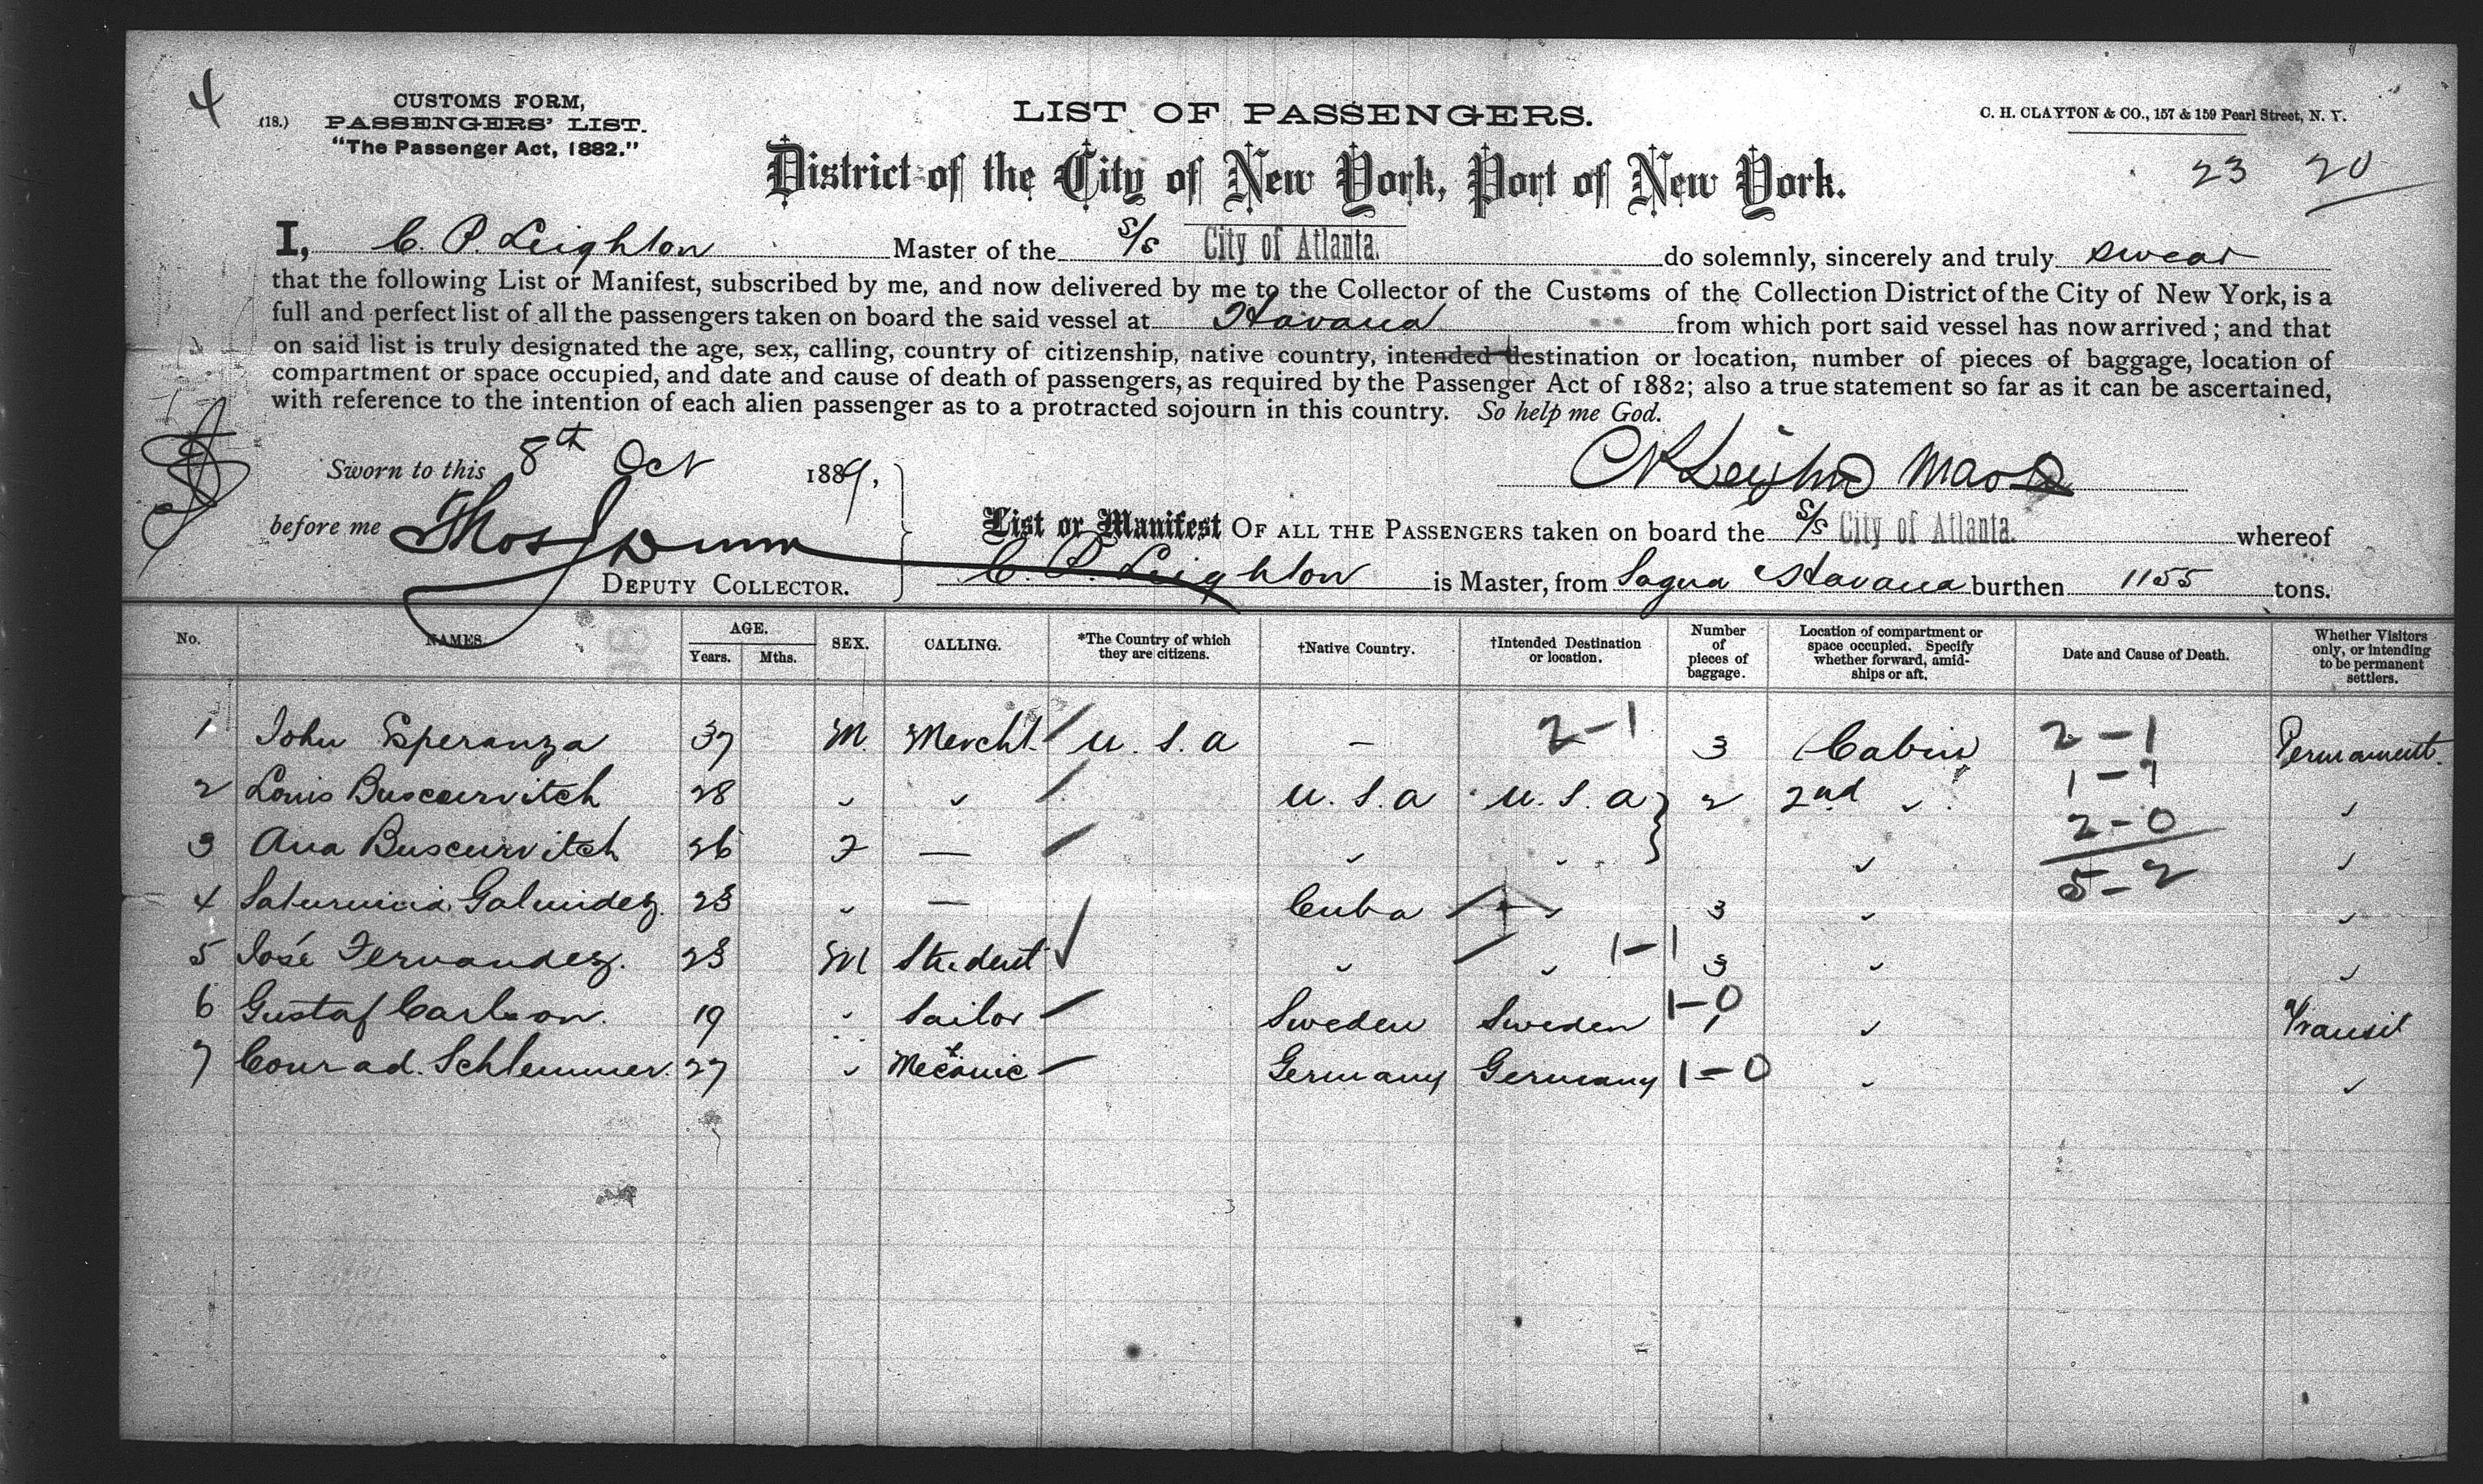 4
CUSTOMS FORM,
(18.) PASSENGERS' LIST.
"The Passenger Act, 1882."
LIST OF PASSENGERS.
C. H. CLAYTON & CO., 157 & 159 Pearl Street, N. Y.
District of the City of New York, Port of New York.
23 20
I, C. P. Leighton Master of the S/S City of Atlanta. do solemnly, sincerely and truly swear
that the following List or Manifest, subscribed by me, and now delivered by me to the Collector of the Customs of the Collection District of the City of New York, is a
full and perfect list of all the passengers taken on board the said vessel at Havana from which port said vessel has now arrived; and that
on said list is truly designated the age, sex, calling, country of citizenship, native country, intended destination or location, number of pieces of baggage, location of
compartment or space occupied, and date and cause of death of passengers, as required by the Passenger Act of 1882; also a true statement so far as it can be ascertained,
with reference to the intention of each alien passenger as to a protracted sojourn in this country. So help me God.
Sworn to this 8th Oct 1889,
C P Leighton
before me Thos J Dunn
DEPUTY COLLECTOR.
List or Manifest OF ALL THE PASSENGERS taken on board the S/S City of Atlanta. whereof
C. P. Leighton is Master, from Sagua Havana burthen 1155 tons.
No. NAMES. AGE. Years. Mths. SEX. CALLING. *The Country of which they are citizens. †Native Country. †Intended Destination or location. Number of pieces of baggage. Location of compartment or space occupied. Specify whether forward, amidships or aft. Date and Cause of Death. Whether Visitors only, or intending to be permanent settlers.
1 John Esperanza 37 M. Mercht. U. S. A — 2-1 3 Cabin 2-1 Permanent.
2 Louis Buscurvitch 28 " " U. S. A U. S. A 2 2nd " 1-1 "
3 Ana Buscurvitch 26 F — " " " 2-0 "
5-2
4 Saturnina Galmidez. 23 " — Cuba " 3 " "
5 José Fernandez. 23 M Student " " 1-1 3 " "
6 Gustaf Carlson. 19 " Sailor Sweden Sweden 1-0 1 " Transit
7 Conrad. Schlemmer. 27 " Mechanic Germany Germany 1-0 " "